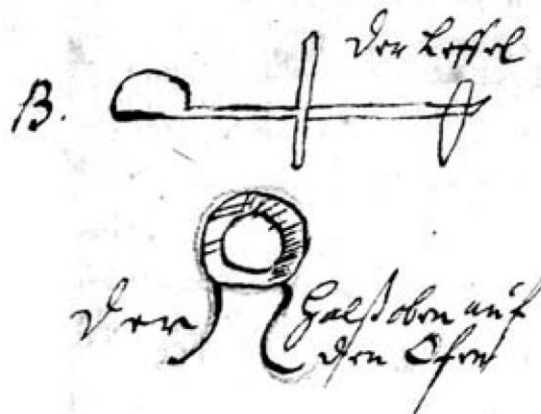 Der Leffel
B.
Der Halß oben auf
den Ofen